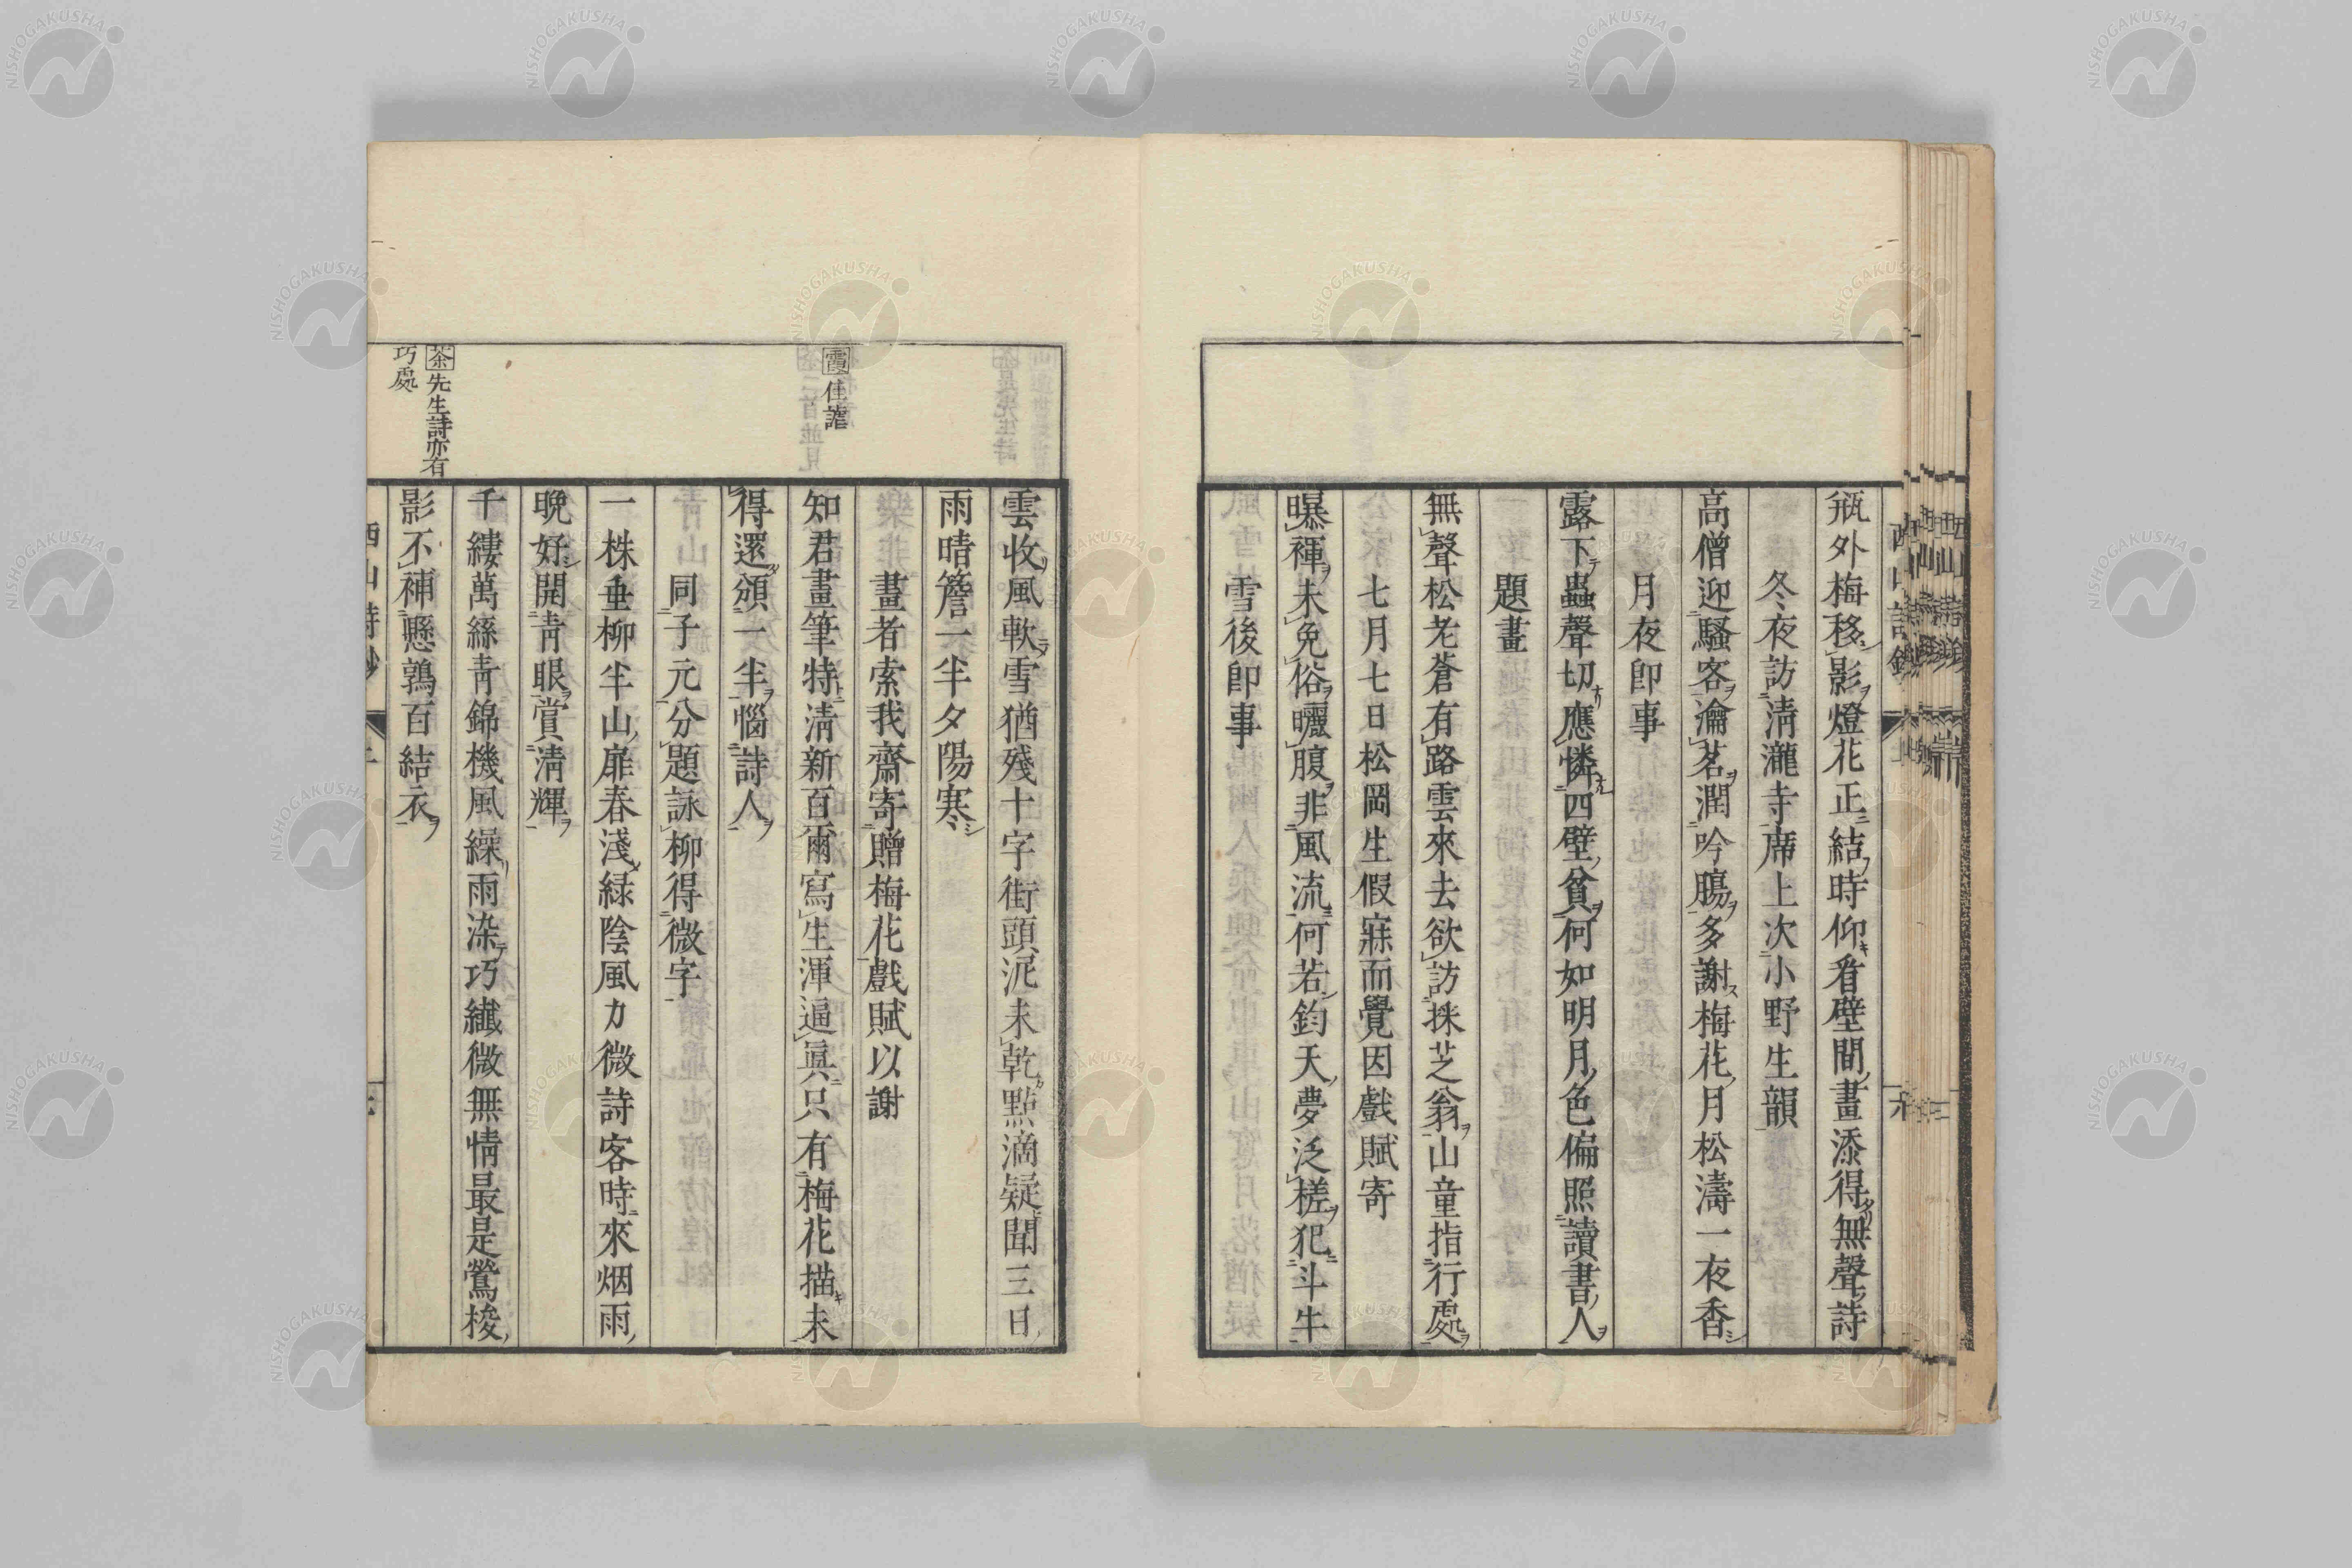 瓶外梅移影燈花正結時仰看壁間畫添得無聲詩
冬夜訪清瀧寺席上次小野生韻
高僧迎騷客瀹茗潤吟腸多謝梅花月松濤一夜香
月夜即事
露下蟲聲切應憐四壁貧何如明月色偏照讀書人
題畫
無聲松老蒼有路雲來去欲訪採芝翁山童指行處
七月七日松岡生假寐而覺因戲賦寄
曝褌未免俗曬腹非風流何若鈞天夢泛槎犯斗牛
雪後即事
雲收風軟雪猶殘十字街頭泥未乾點滴疑聞三日
雨晴簷一半夕陽寒
畫者索我齋寄贈梅花戲賦以謝
知君畫筆特清新百爾寫生渾逼眞只有梅花描未
得還頒一半惱詩人
同子元分題詠柳得微字
一株垂柳半山扉春淺綠陰風力微詩客時來烟雨
晩好開青眼賞清輝
千縷萬絲青錦機風繰雨染巧纖微無情最是鶯梭
影不補懸鶉百結衣
霞佳謔
茶先生詩亦有
巧處
西山詩鈔
NISHOGAKUSHA